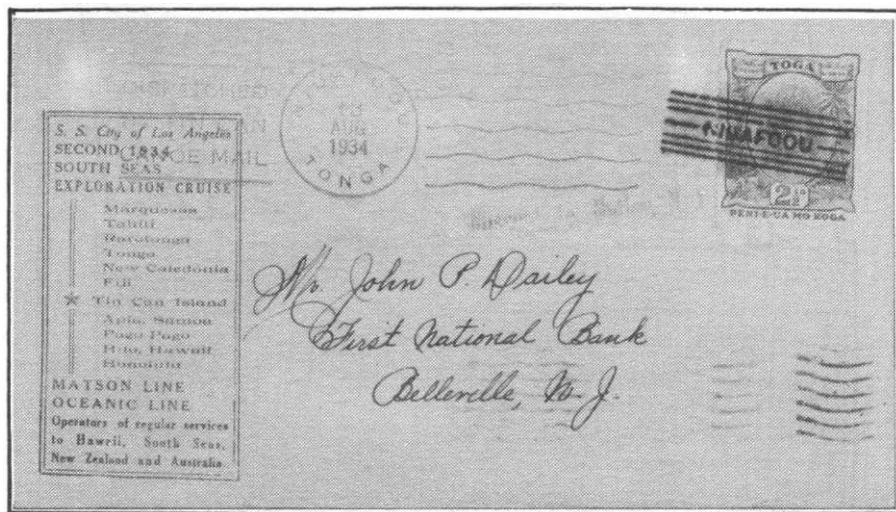 S. S. City of Los Angeles
SECOND 1934
SOUTH SEAS
EXPLORATION CRUISE
Marquesas
Tahiti
Rarotonga
Tonga
New Caledonia
Fiji
Tin Can Island
Apia, Samoa
Pago Pago
Hilo, Hawaii
Honolulu
MATSON LINE
OCEANIC LINE
Operators of regular services
to Hawaii, South Seas,
New Zealand and Australia
CANOE MAIL
13
AUG
1934
TONGA
TOGA
NIUAFOOU
2½
PENI-E-UA MO KOGA
Mr. John P. Dailey
First National Bank
Belleville, N. J.